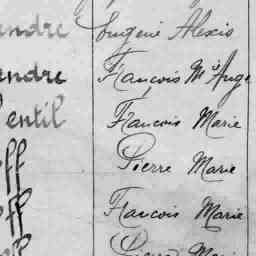 endre Eugène Alexis
endre François M Ange
entil François Marie
ff Pierre Marie
ff François Marie
ff Pierre Marie